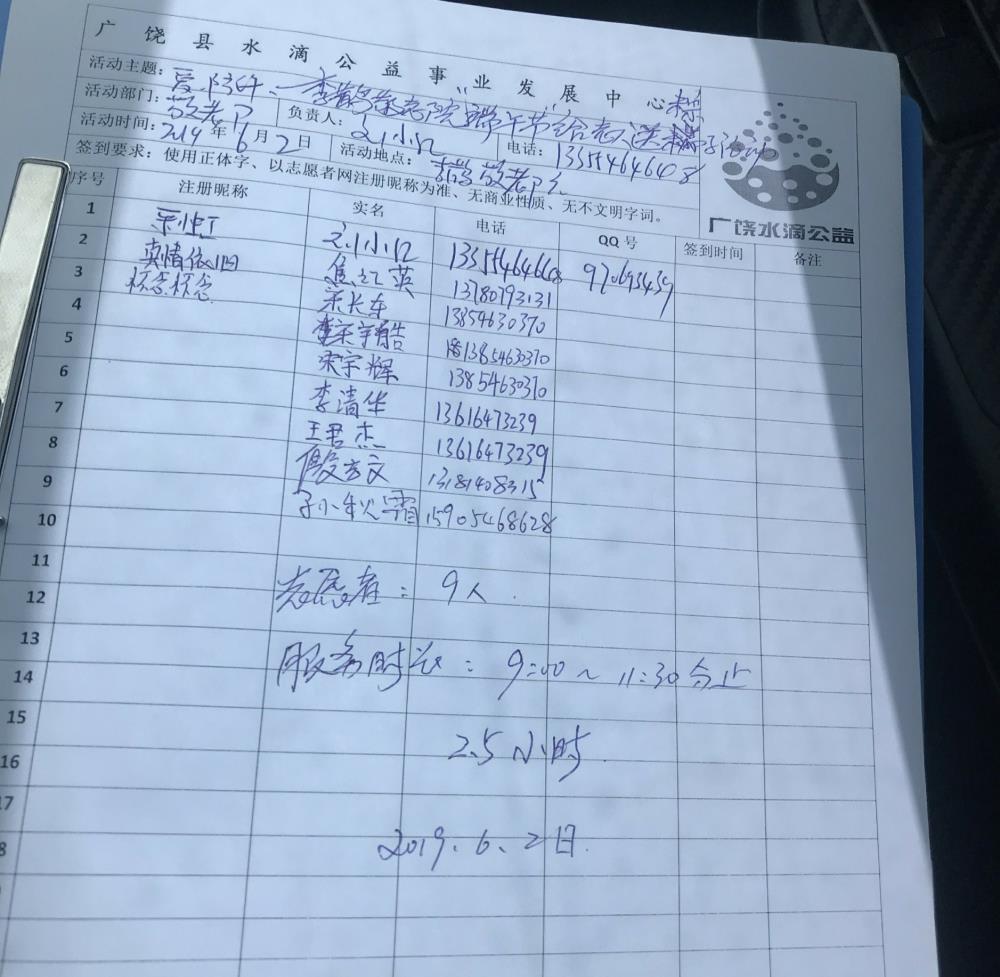 广饶县水滴公益事业发展中心
活动主题：爱 敬老院端午节给老人送 子活动
活动部门：敬老 负责人：刘小 电话：13355464648
活动时间：2019年6月2日 活动地点： 敬老
签到要求：使用正体字、以志愿者网注册昵称为准、无商业性质、无不文明字词。
广饶水滴公益
序号 注册昵称 实名 电话 QQ号 签到时间 备注
1 刘小 970695439
2 真情依旧 焦 英 13780793131
3 宋长车 13854630370
4 宋宇皓 13854630370
5 宋宇辉 13854630370
6 李清华 13616473239
7 王君杰 13616473239
8 文 13181408315
9 孙秋霜 15905468628
10
11
志愿者：9人
12
13
服务时长：9:00~11:30分止
14
15
2.5小时
16
17
2019.6.2日